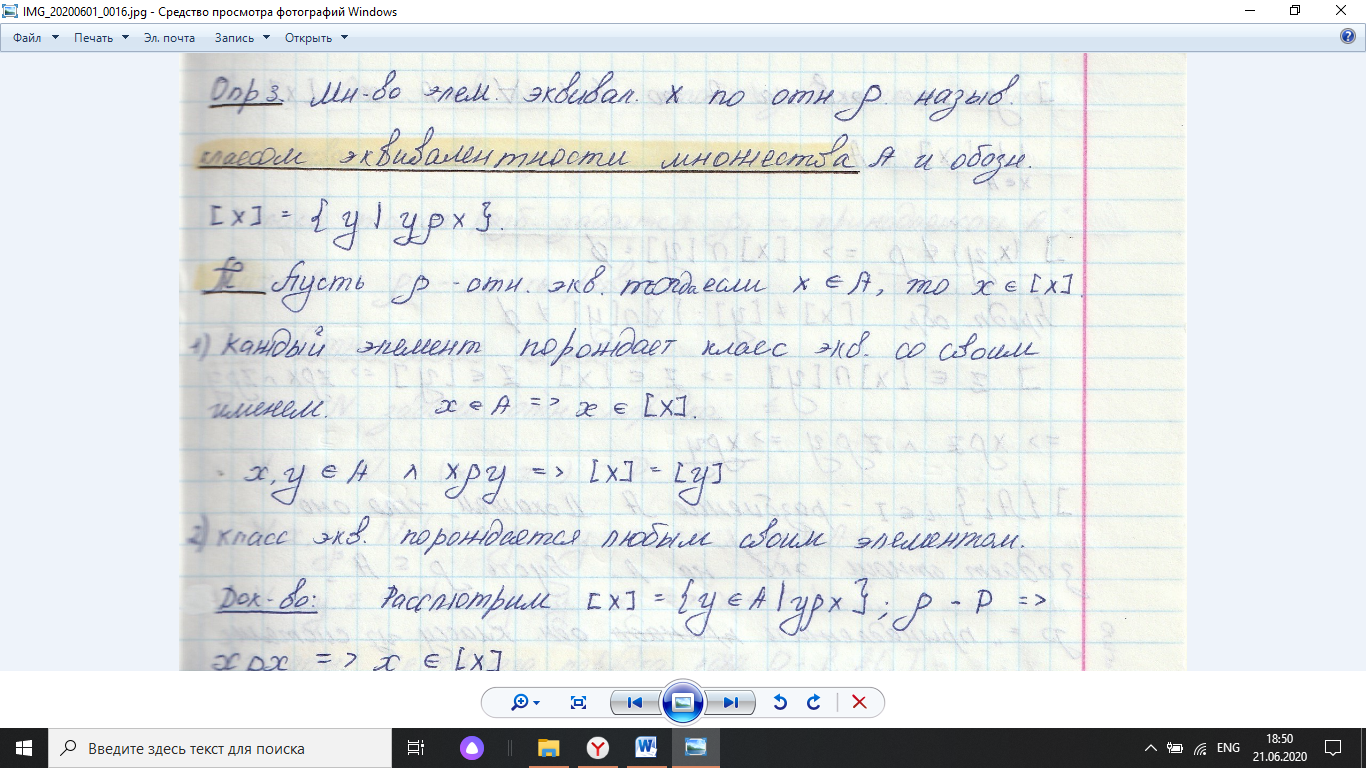 IMG_20200601_0016.jpg - Средство просмотра фотографий Windows
Файл Печать Эл. почта Запись Открыть
Опр 3. Мн-во элем. эквивал. x по отн ρ. назыв.
классом эквивалентности множества A и обозн.
[x] = { y | yρx }.
Пусть ρ - отн. экв. тогда если x ∈ A, то x ∈ [x].
1) Каждый элемент порождает класс экв. со своим
именем. x ∈ A => x ∈ [x].
x, y ∈ A ∧ xρy => [x] = [y]
2) класс экв. порождается любым своим элементом.
Док-во: Рассмотрим [x] = { y ∈ A | yρx }; ρ - P =>
xρx => x ∈ [x]
Введите здесь текст для поиска
ENG
18:50
21.06.2020